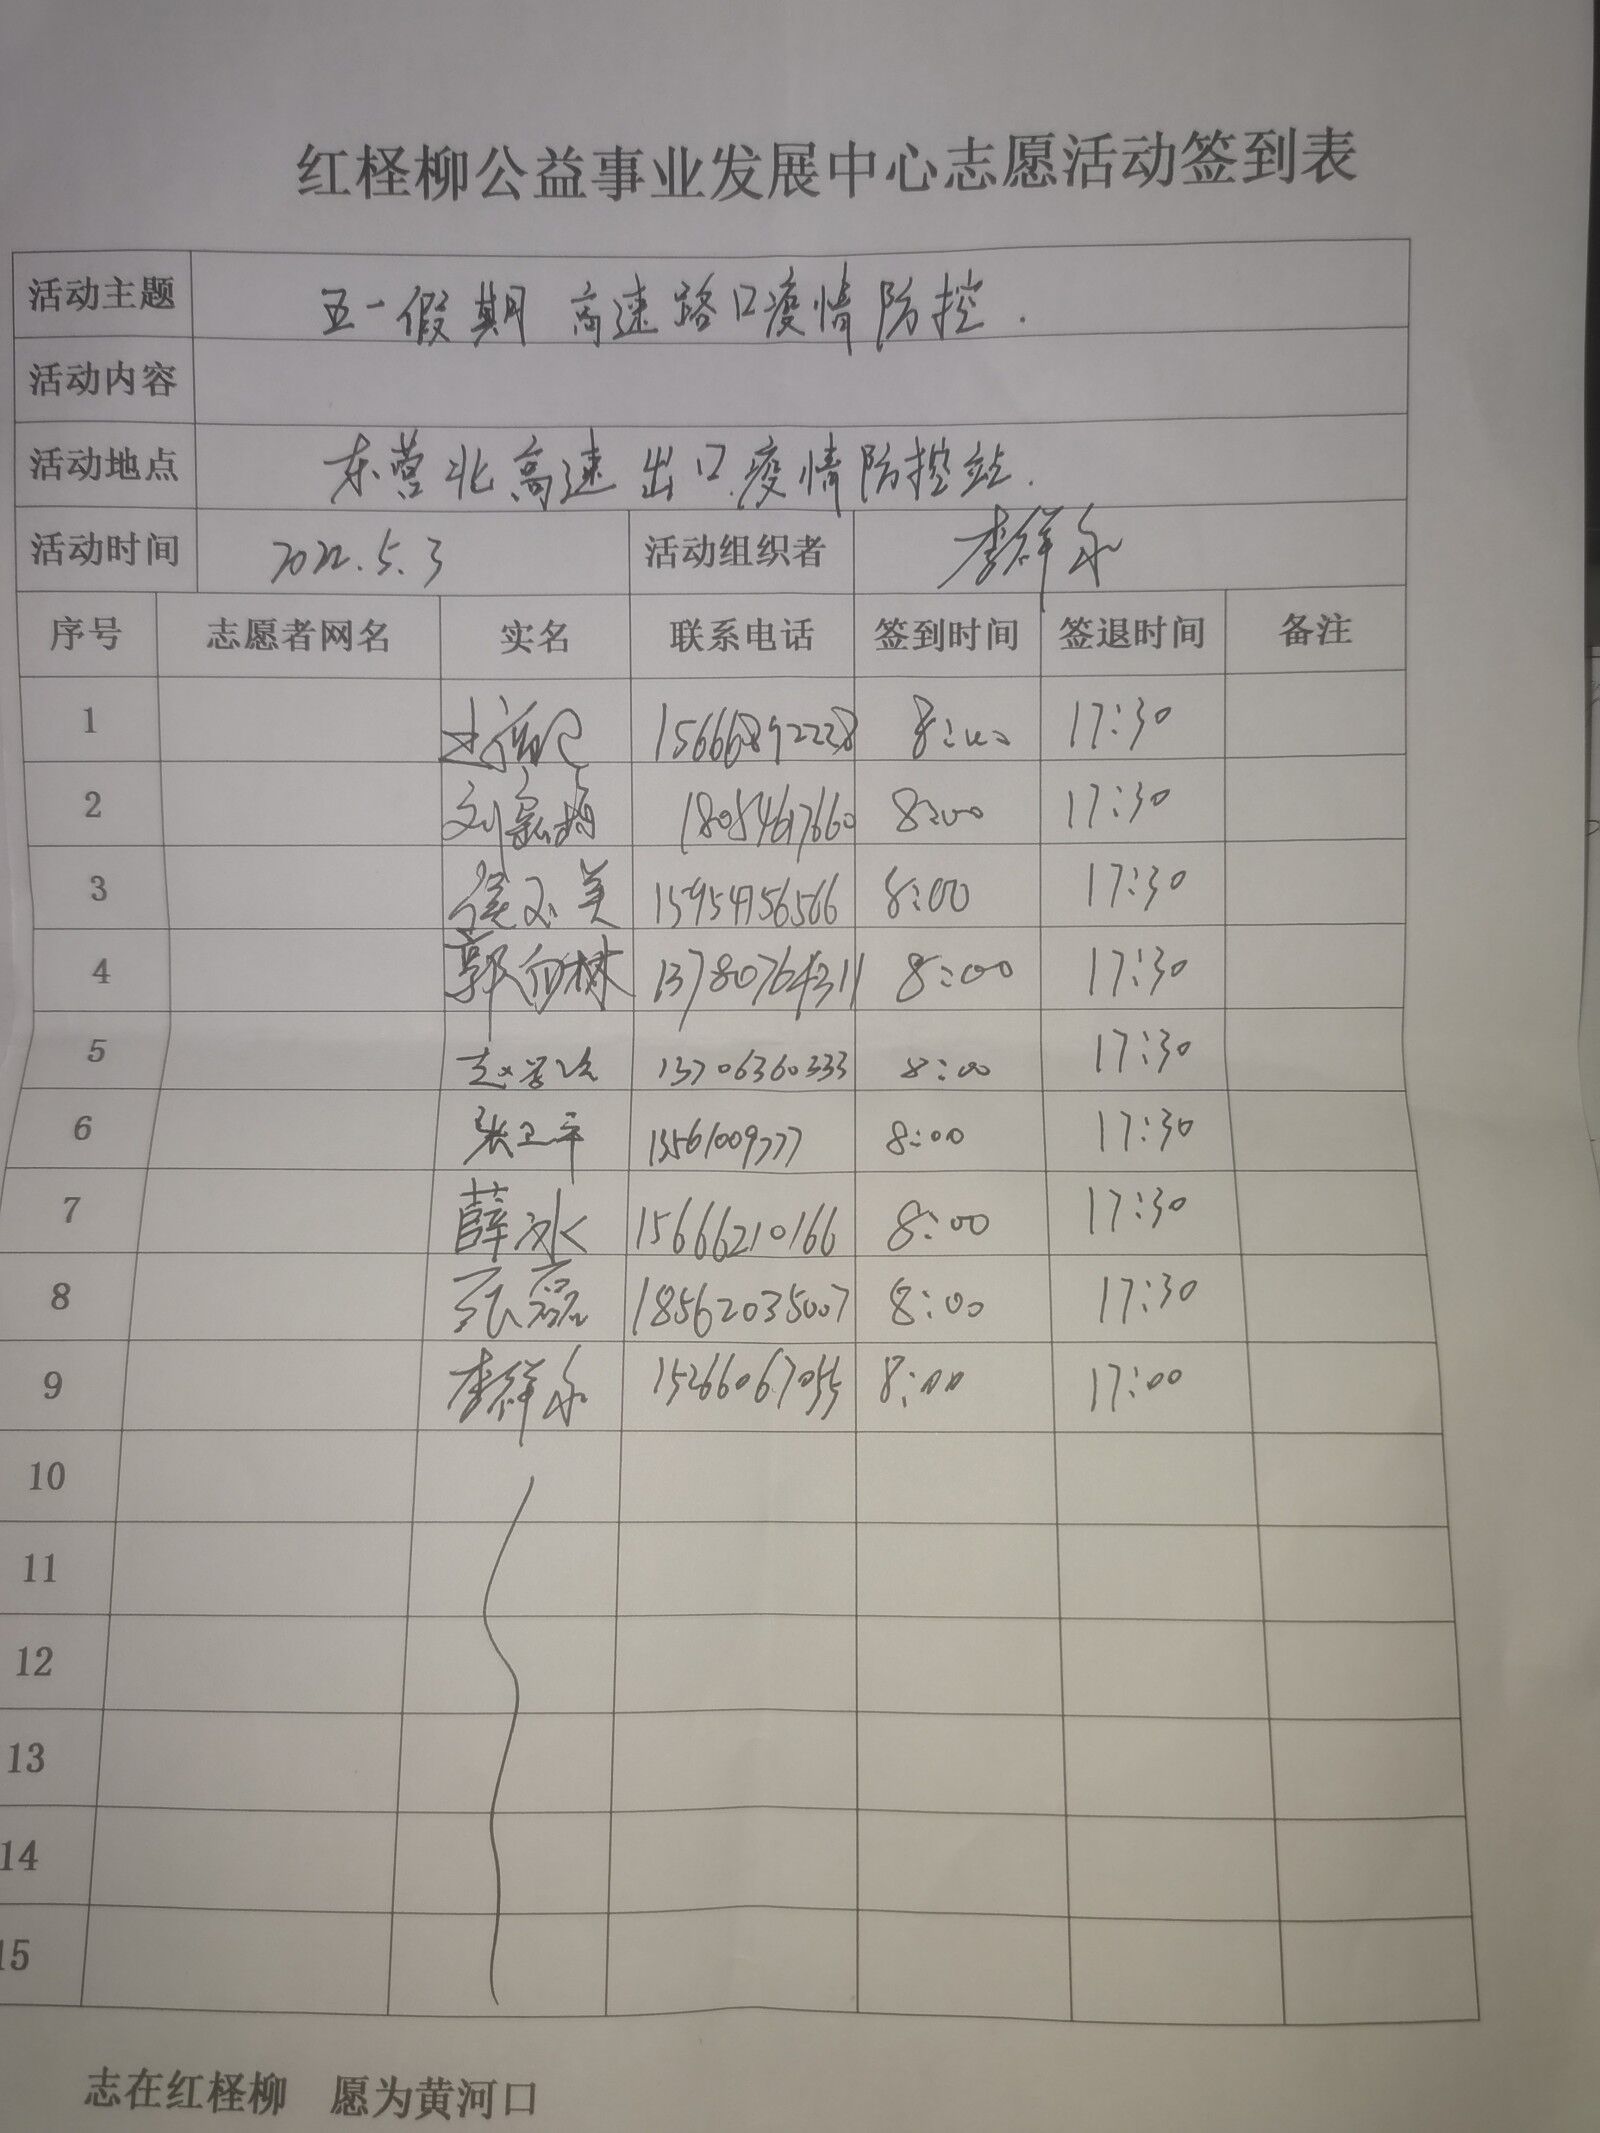 红柽柳公益事业发展中心志愿活动签到表
活动主题 五一假期 高速路口疫情防控.
活动内容
活动地点 东营北高速出口疫情防控站.
活动时间 2022.5.3 活动组织者 李祥永
序号 志愿者网名 实名 联系电话 签到时间 签退时间 备注
1 15666892228 8:00 17:30
2 18054617660 8:00 17:30
3 侯玉美 15954756566 8:00 17:30
4 13780764311 8:00 17:30
5 13706360333 8:00 17:30
6 张卫平 13561009777 8:00 17:30
7 薛冰 15666210166 8:00 17:30
8 张磊 18562035007 8:00 17:30
9 李祥永 15266067055 8:00 17:00
10
11
12
13
14
15
志在红柽柳 愿为黄河口